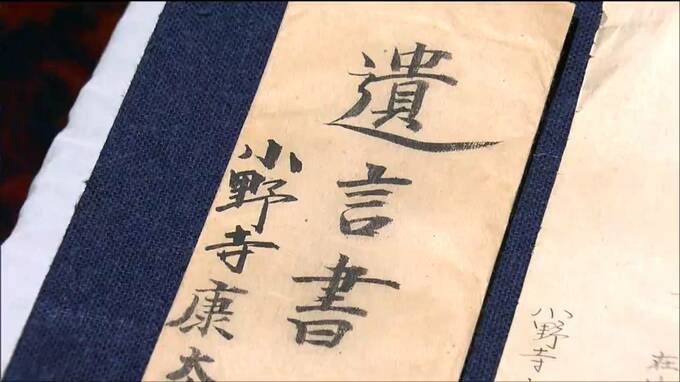 遺言書
小野寺康太
小野寺
在